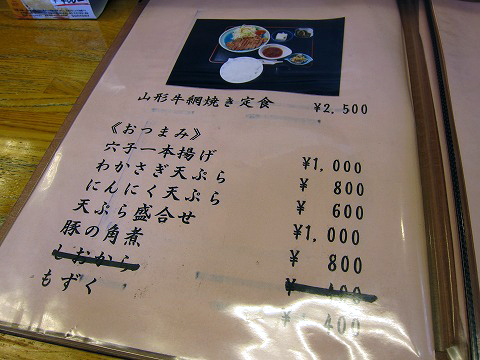 山形牛網焼き定食 ¥2,500
《おつまみ》
穴子一本揚げ ¥1,000
わかさぎ天ぷら ¥ 800
にんにく天ぷら ¥ 600
天ぷら盛合せ ¥1,000
豚の角煮 ¥ 800
しおから ¥ 400
もずく ¥ 400